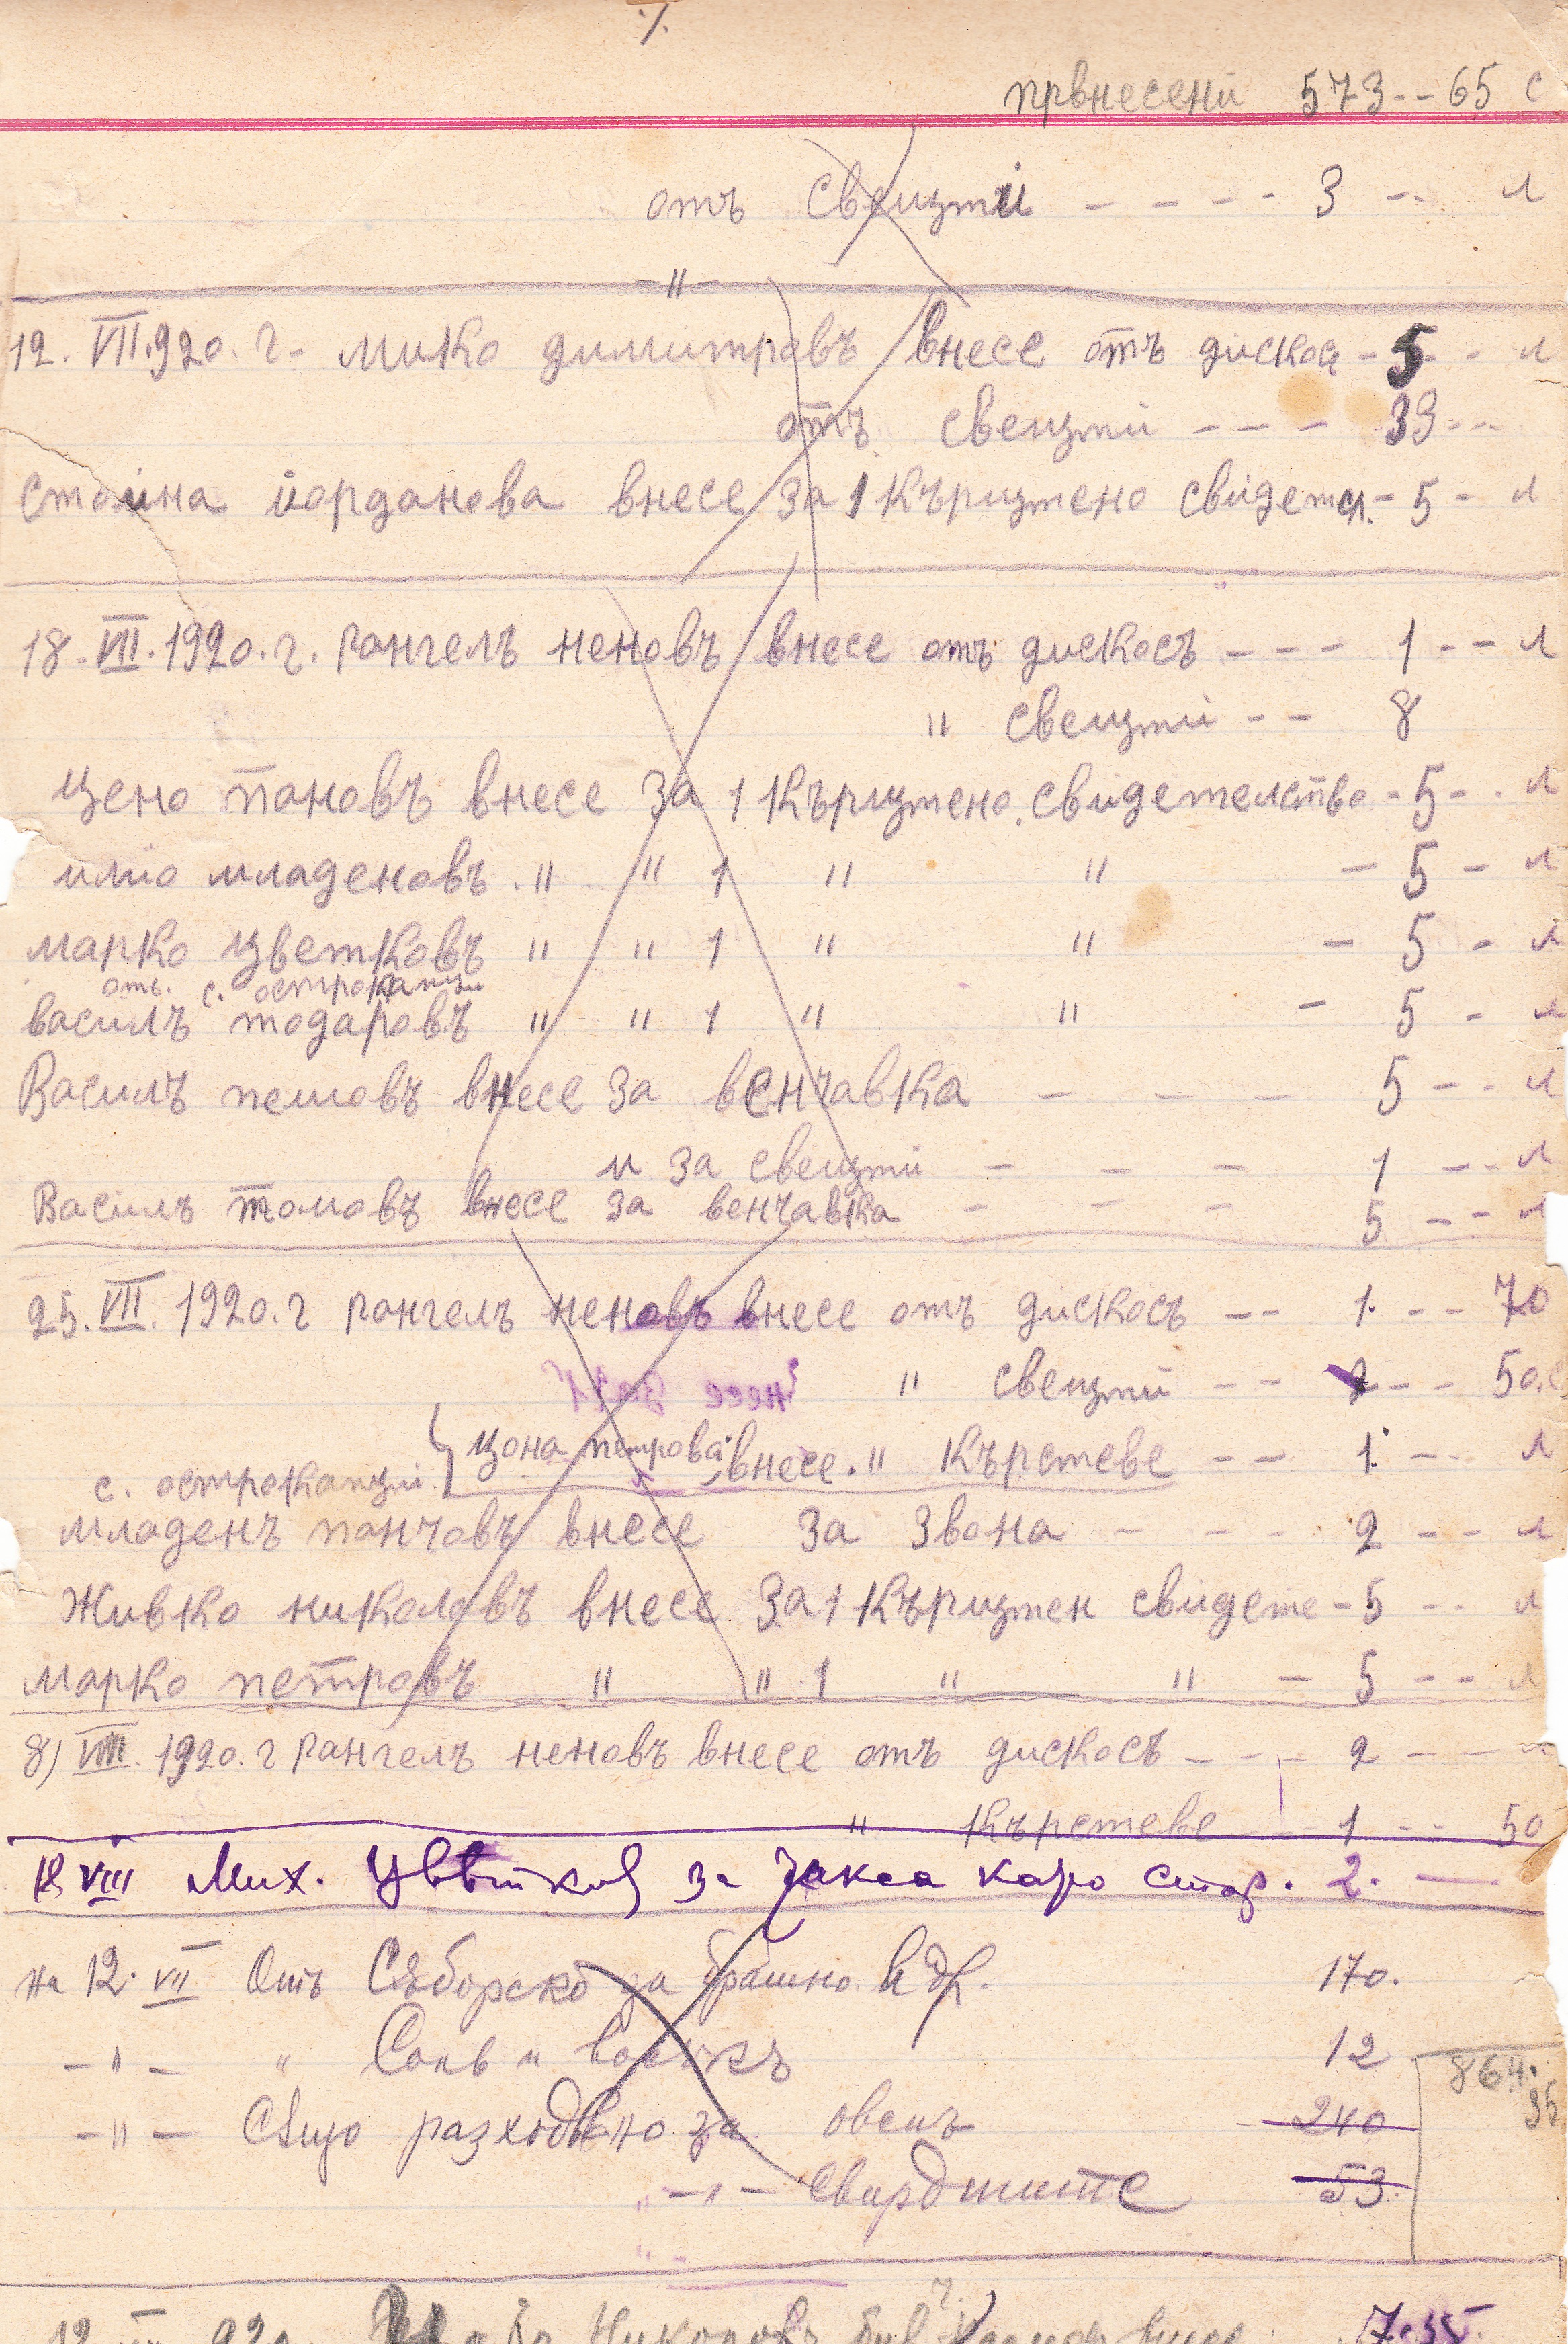 ./.
првнесени 573 -- 65 с
отъ свещти - - - - 3 -- л
- " -
12. VII.920. г. мико димитровъ внесе отъ дискос - 5 - - л
отъ свещти - - - 33 --
стоина иорданова внесе за 1 кърщтено свидетел. - 5 - л
18. VII. 1920. г. рангелъ неновъ внесе отъ дискосъ - - - 1 - - л
" свещти - - 8
цено пановъ внесе за 1 кърщтено свидетелство - 5 - . л
илио младеновъ . " " 1 " " - 5 - л
марко цветковъ " " 1 " " - 5 - л
отъ. с.острокапци
василъ тодаровъ " " 1 " " - 5 - л
Василъ пешовъ внесе за венчавка - - - 5 - - л
и за свещти - - - 1 - - л
Василъ томовъ внесе за венчавка - - - 5 - - л
25. VII. 1920. г рангелъ неновъ внесе отъ дискосъ - - 1. - - 70
" свещти - - - - 50.с
цона петрова внесе. " кърстеве - - 1. - - л
с. острокапци
младенъ панчовъ внесе за звона - - - 2 - - л
Живко николовъ внесе за 1 кърщтен свидете - 5 - - л
марко петровъ " " . 1 " " - 5 - - л
8) VIII. 1920. г рангелъ неновъ внесе отъ дискосъ - - - 2 - - л
" кърстеве - - - 1 - - 50
VIII Мих. Цвѣтков за такса каро стар. 2. —
на 12. VII Отъ Съборско за брашно и др. 170.
- " - " Соль и восъкъ 12
864.
35
- " - Също разходвено за овенъ 240
" - " - Свирджиите 53